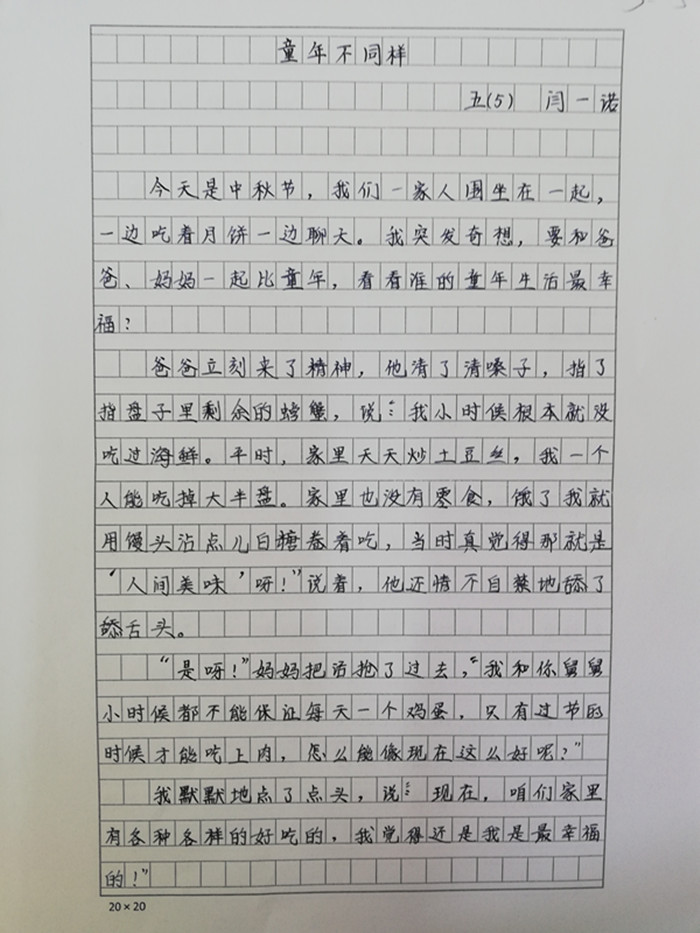 童年不同样
五(5) 闫一诺
今天是中秋节，我们一家人围坐在一起，
一边吃着月饼一边聊天。我突发奇想，要和爸
爸、妈妈一起比童年，看看谁的童年生活最幸
福？
爸爸立刻来了精神，他清了清嗓子，指了
指盘子里剩余的螃蟹，说：“我小时候根本就没
吃过海鲜。平时，家里天天炒土豆丝，我一个
人能吃掉大半盘。家里也没有零食，饿了我就
用馒头沾点儿白糖卷着吃，当时真觉得那就是
‘人间美味’呀！”说着，他还情不自禁地舔了
舔舌头。
“是呀！”妈妈把话抢了过去，“我和你舅舅
小时候都不能保证每天一个鸡蛋，只有过节的
时候才能吃上肉，怎么能像现在这么好呢？”
我默默地点了点头，说：“现在，咱们家里
有各种各样的好吃的，我觉得还是我是最幸福
的！”
20×20